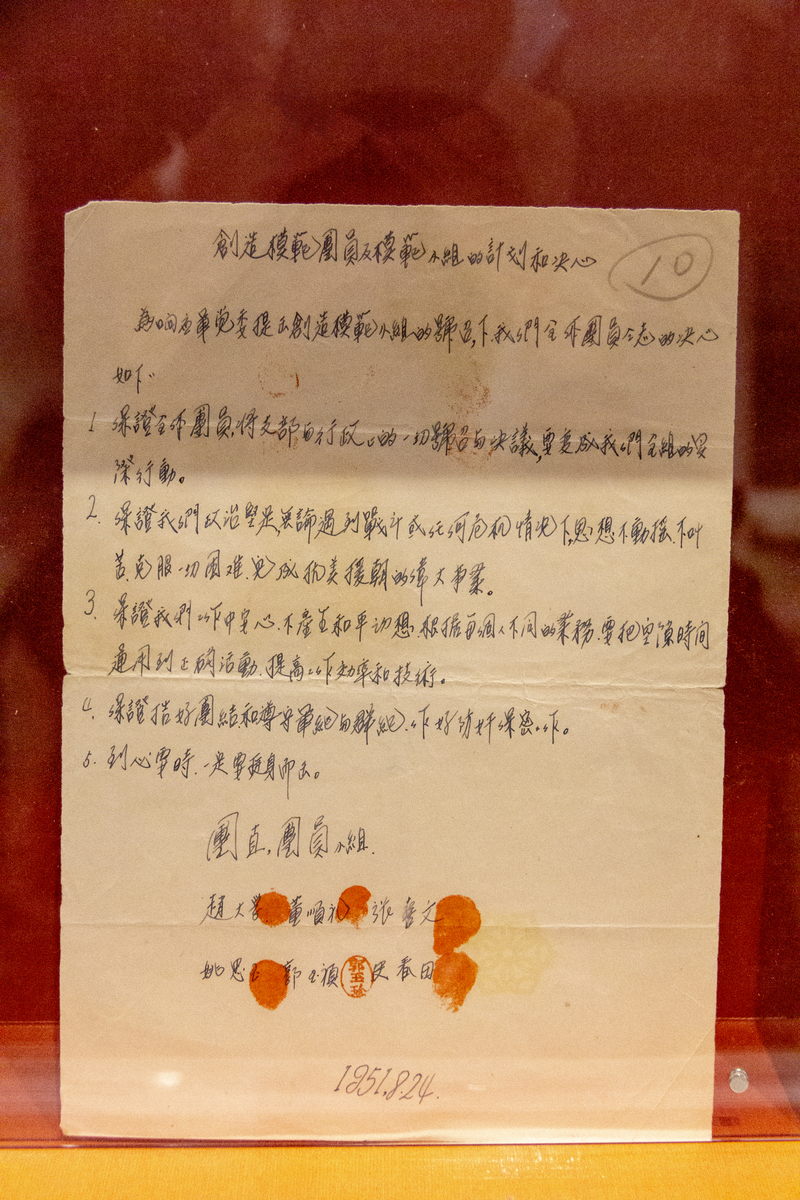 創造模範團員及模範小組的計划和决心
10
為响应軍党委提出創造模範小組的號召下,我們全体團員同志的决心
如下:
1 保證全体團員,將支部与行政上的一切號召与决議,要变成我們全組的实
際行動。
2. 保證我們政治堅定,無論遇到戰斗或任何危机情况下,思想不動摇.不叫
苦.克服一切困难.完成抗美援朝的偉大事業。
3. 保證我們工作中安心.不產生和平幻想.根据每個人不同的業務.要把空隙時間
運用到正确活動.提高工作効率和技術。
4. 保證搞好團結和遵守軍紀与群紀.作好防奸保密工作。
5. 到必要時.一定要挺身而出。
團直,團員小組.
趙大 董順礼 張 文
姚思玉 郭玉禎 郭玉珍 史春田
1951.8.24.